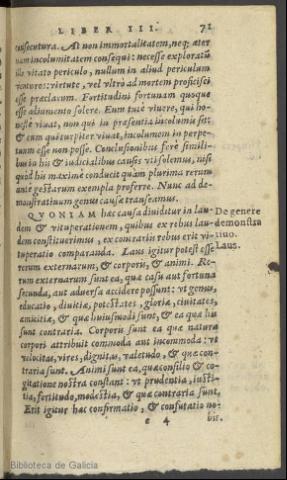 LIBER III. 71
consecutura. At non immortalitatem, neq; æter
nam incolumitatem consequi: necesse exploratũ
illo vitato periculo, nullum in aliud periculum
venturo: virtute, vel vltrò ad mortem proficisci
esse præclarum. Fortitudini fortunam quoque
esse adiumento solere. Eum tutè viuere, qui ho-
nestè viuat, non qui in præsentia incolumis sit:
& eum qui turpiter viuat, incolumem in perpe-
tuum esse non posse. Conclusionibus ferè simili-
bus in his & iudicialibus causis vti solemus, nisi
quòd his maximè conducit quàm plurima rerum
antè gestarum exempla proferre. Nunc ad de-
monstratiuum genus causæ transeamus.
QVONIAM hæc causa diuiditur in lau-
De genere
dem & vituperationem, quibus ex rebus lau-
demonstra
dem constituerimus, ex contrariis rebus erit vi-
tiuo.
tuperatio comparanda. Laus igitur potest esse
Laus.
rerum externarum, & corporis, & animi. Re-
rum externarum sunt ea, quæ casu aut fortuna
secunda, aut aduersa accidere possunt: vt genus,
educatio, diuitiæ, potestates, gloria, ciuitates,
amicitiæ, & quæ huiusmodi sunt, & ea quæ his
sunt contraria. Corporis sunt ea quæ natura
corpori attribuit commoda aut incommoda: vt
velocitas, vires, dignitas, valetudo, & quæ con-
traria sunt. Animi sunt ea, quæ consilio & co-
gitatione nostra constant: vt prudentia, iusti-
tia, fortitudo, modestia, & quæ contraria sunt.
Erit igitur hæc confirmatio, & confutatio no-
e 4 bis.
Biblioteca de Galicia